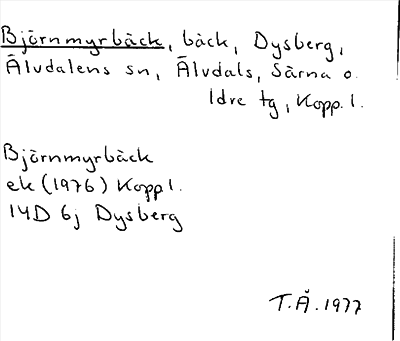 Björnmyrbäck, bäck, Dysberg,
Älvdalens sn, Älvdals, Särna o.
Idre tg, Kopp. l.
Björnmyrbäck
ek (1976) Kopp l.
14D 6j Dysberg
T.Å. 1977